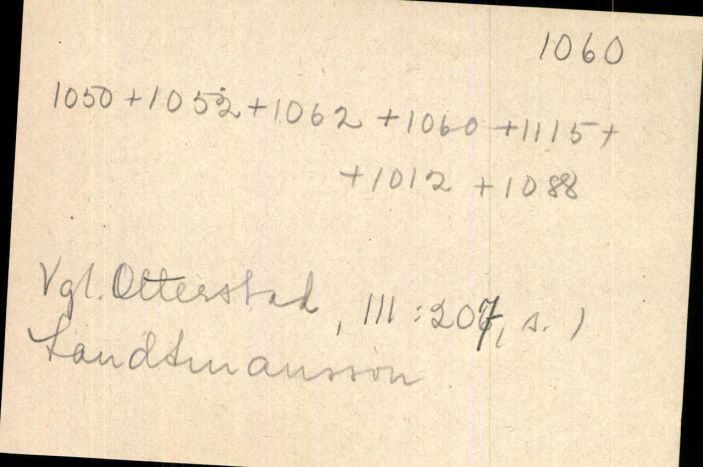 1060
1050 + 1052 + 1062 + 1060 + 1115 +
+ 1012 + 1088
Vgl. Otterstad, III : 207, s. )
Landtmansson